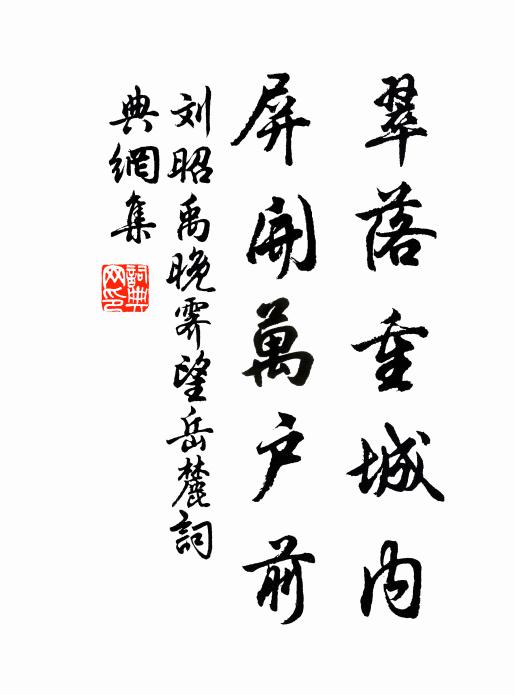 翠落重城内
屏開萬户前
刘昭禹晚霽望岳麓詞
典網集
詞典
网印